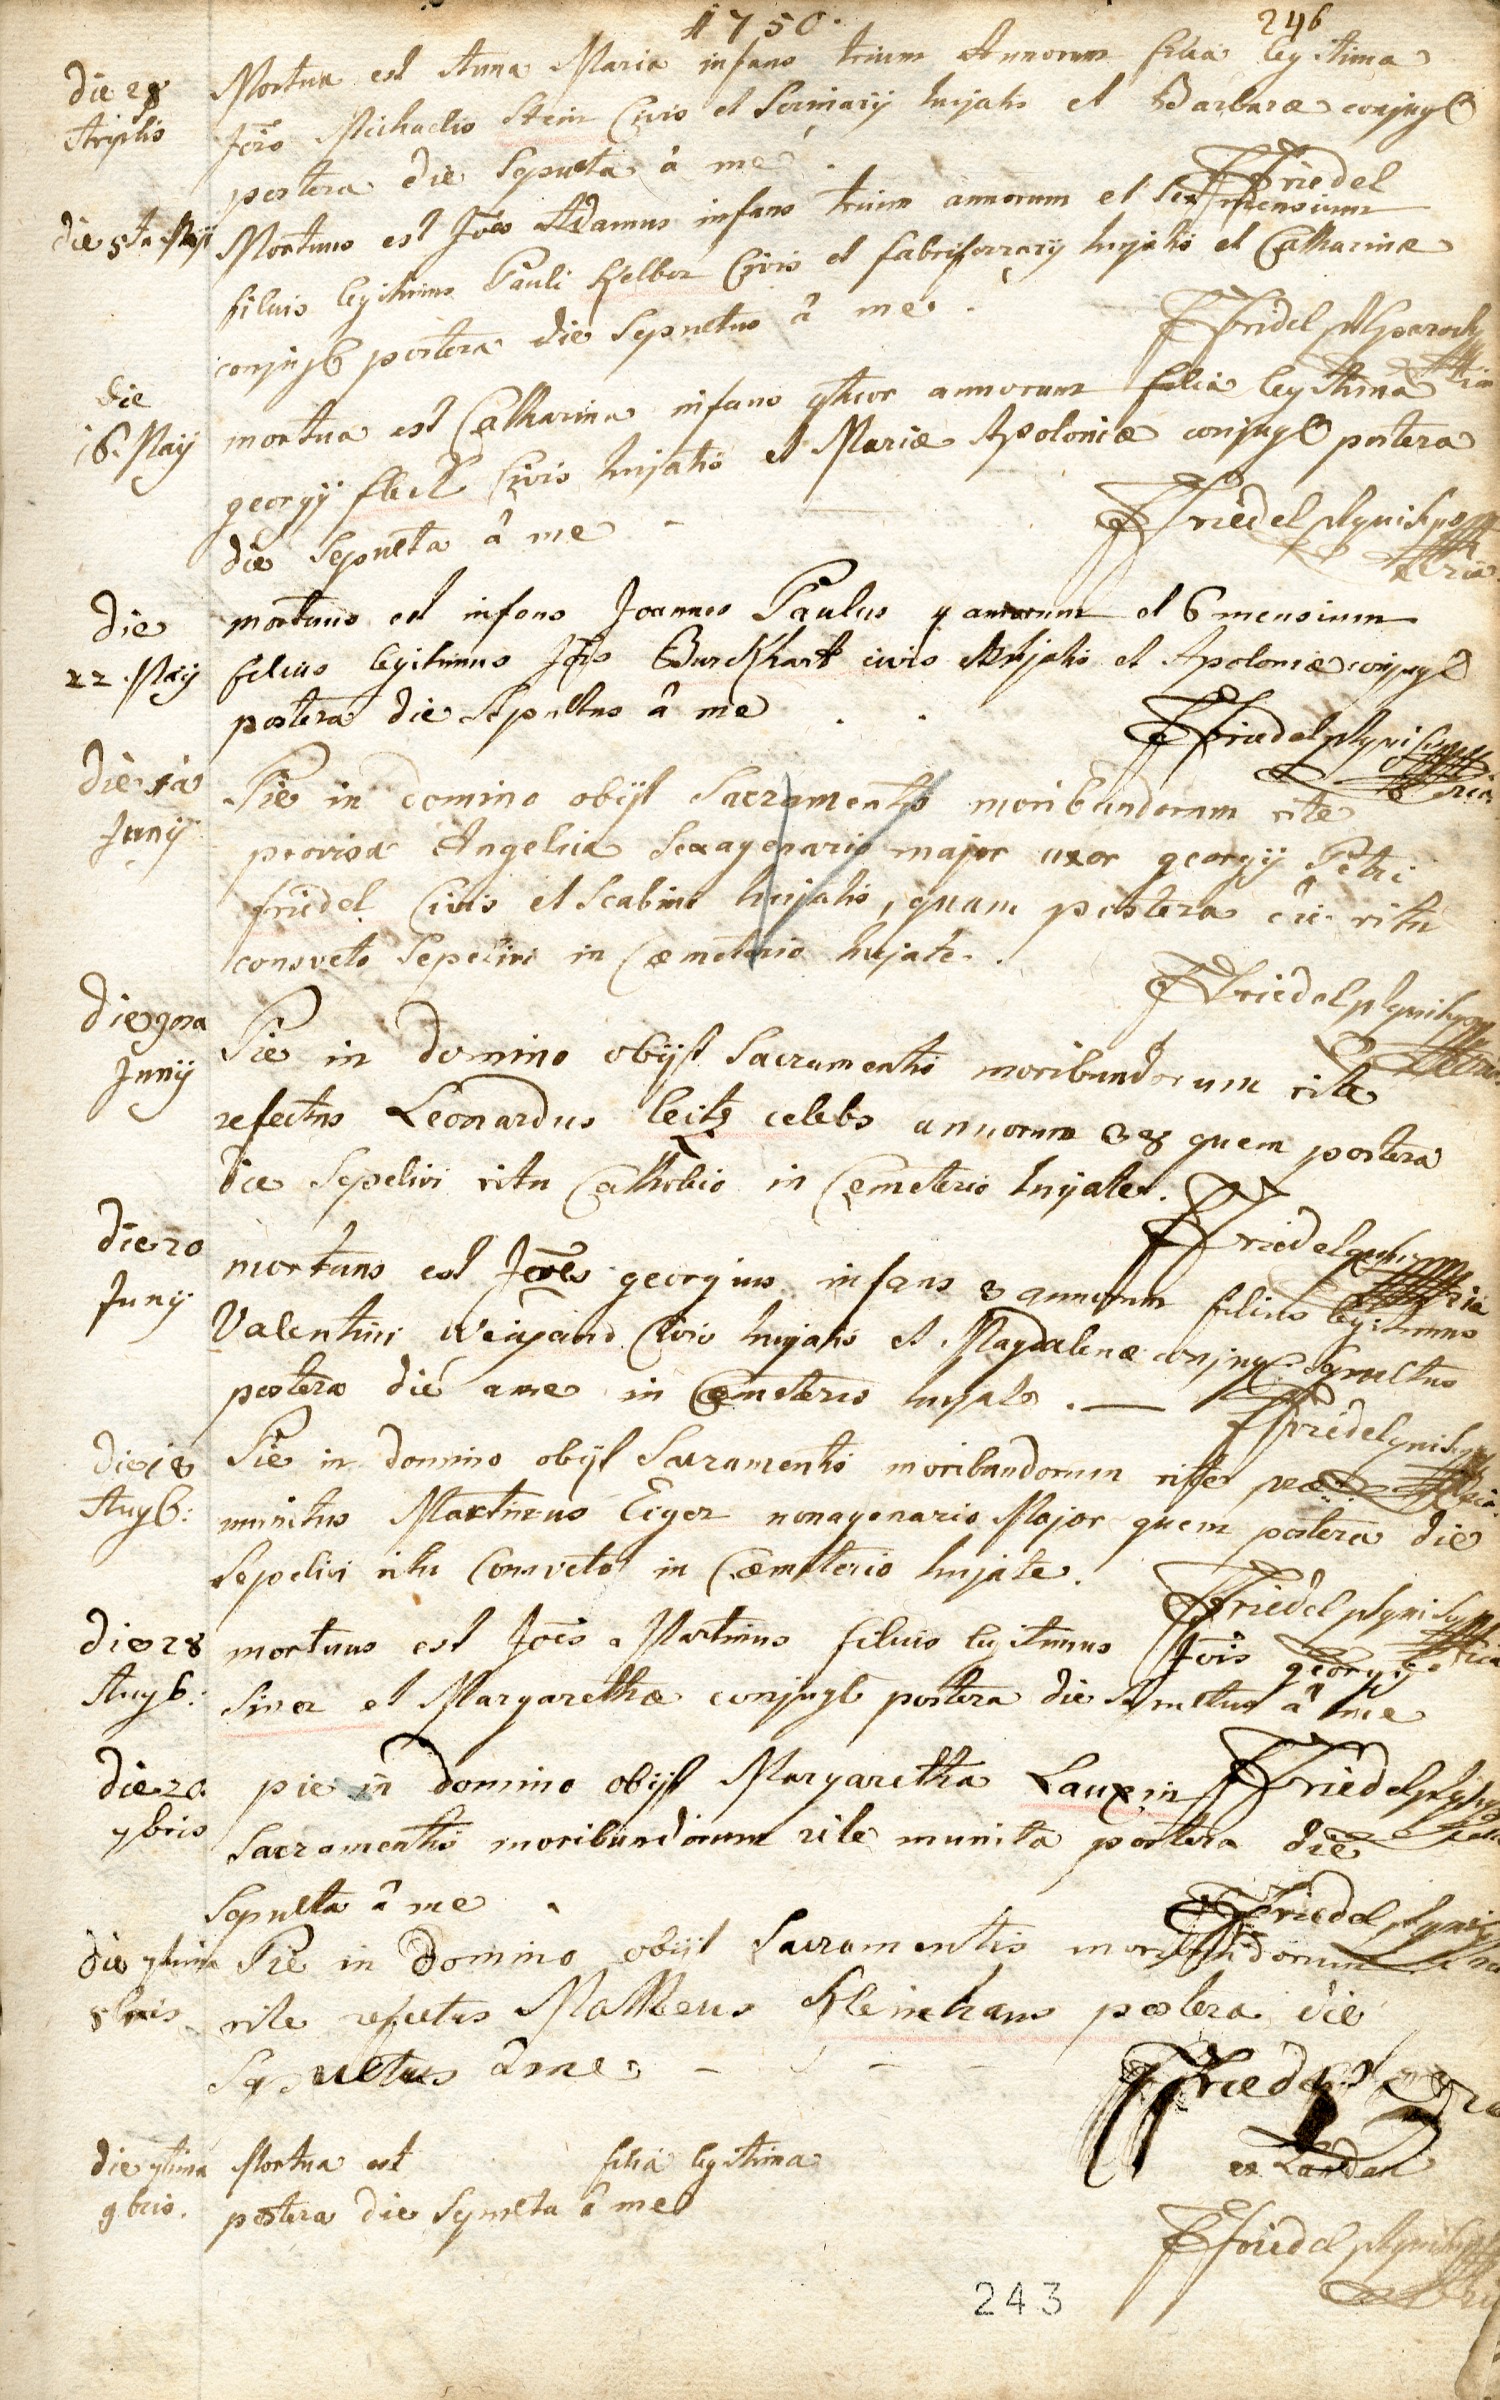 1750.
246
die 28 Mortua est Anna Maria infans trium Annorum filia legitima
Aprilis Jōis Michaelis Stein Civis et Scriniarij hujatis et Barbaræ conjug
postera die Sepulta â me.
FFriedel
die 5ta Maij Mortuus est Joēs Adamus infans trium annorum et sex mensium
filius legitimus Pauli Helbor Civis et fabriferrarij hujatis et Catharinæ
conjug postera die Sepultus â me.
FFridel
die mortua est Catharina infans 4tuor annorum filia legitima
16. Maij georgij fleck Civis hujatis et Mariæ Apoloniæ conjug postera
die Sepulta â me -
FFriedel
die mortuus est infans Joannes Paulus 4 annorum et 6 mensium
22 Maij filius legitimus Jōis Burckhart civis hujatis et Apoloniæ conjug
postera die Sepultus â me . .
FFriedel
die 1a Pie in Domino obijt Sacramentis moribundorum rite
Junij provisa Angelica Sexagenario major uxor georgij Petri
friedel Civis et Scabini hujatis, quam postera die ritu
consveto Sepelivi in Cæmeterio hujate.
FFriedel
die 9na Pie in Domino obijt Sacramentis moribundorum rite
Junij refectus Leonardus Leitz celebs annorum 38 quem postera
die Sepelivi ritu Catholico in Cæmeterio hujate.
FFriedel
die 20 mortuus est Joēs georgius infans 3 annorum filius legitimus
Juny Valentini Weigand Civis hujatis et Magdalenæ conjug Sepultus
postera die a me in Cæmeterio hujate. —
FFriedel
die 18 Pie in Domino obijt Sacramentis moribundorum ritte præ
Augb: munitus Martinus Eiger nonagenario Major quem postera die
Sepelivi ritu Consveto in Cæmeterio hujate.
FFriedel
die 28 mortuus est Joēs Martinus filius legitimus Jōis georgij
Augb: Siver et Margarethæ conjug postera die Sepultus â me
die 20. pie in Domino obijt Margaretha Lauxin FFriedel
7bris Sacramentis moribundorum rite munita postera die
Sepulta â me .
FFriedel
die 7tima Pie in Domino obijt Sacramentis moribundorum
8bris rite refectus Matheus Kleinhans postera die
Sepultus â me -
FFriedel
ex Landen
die 7tima Mortua est filia legitima
9bris. postera die Sepulta â me
FFriedel
243